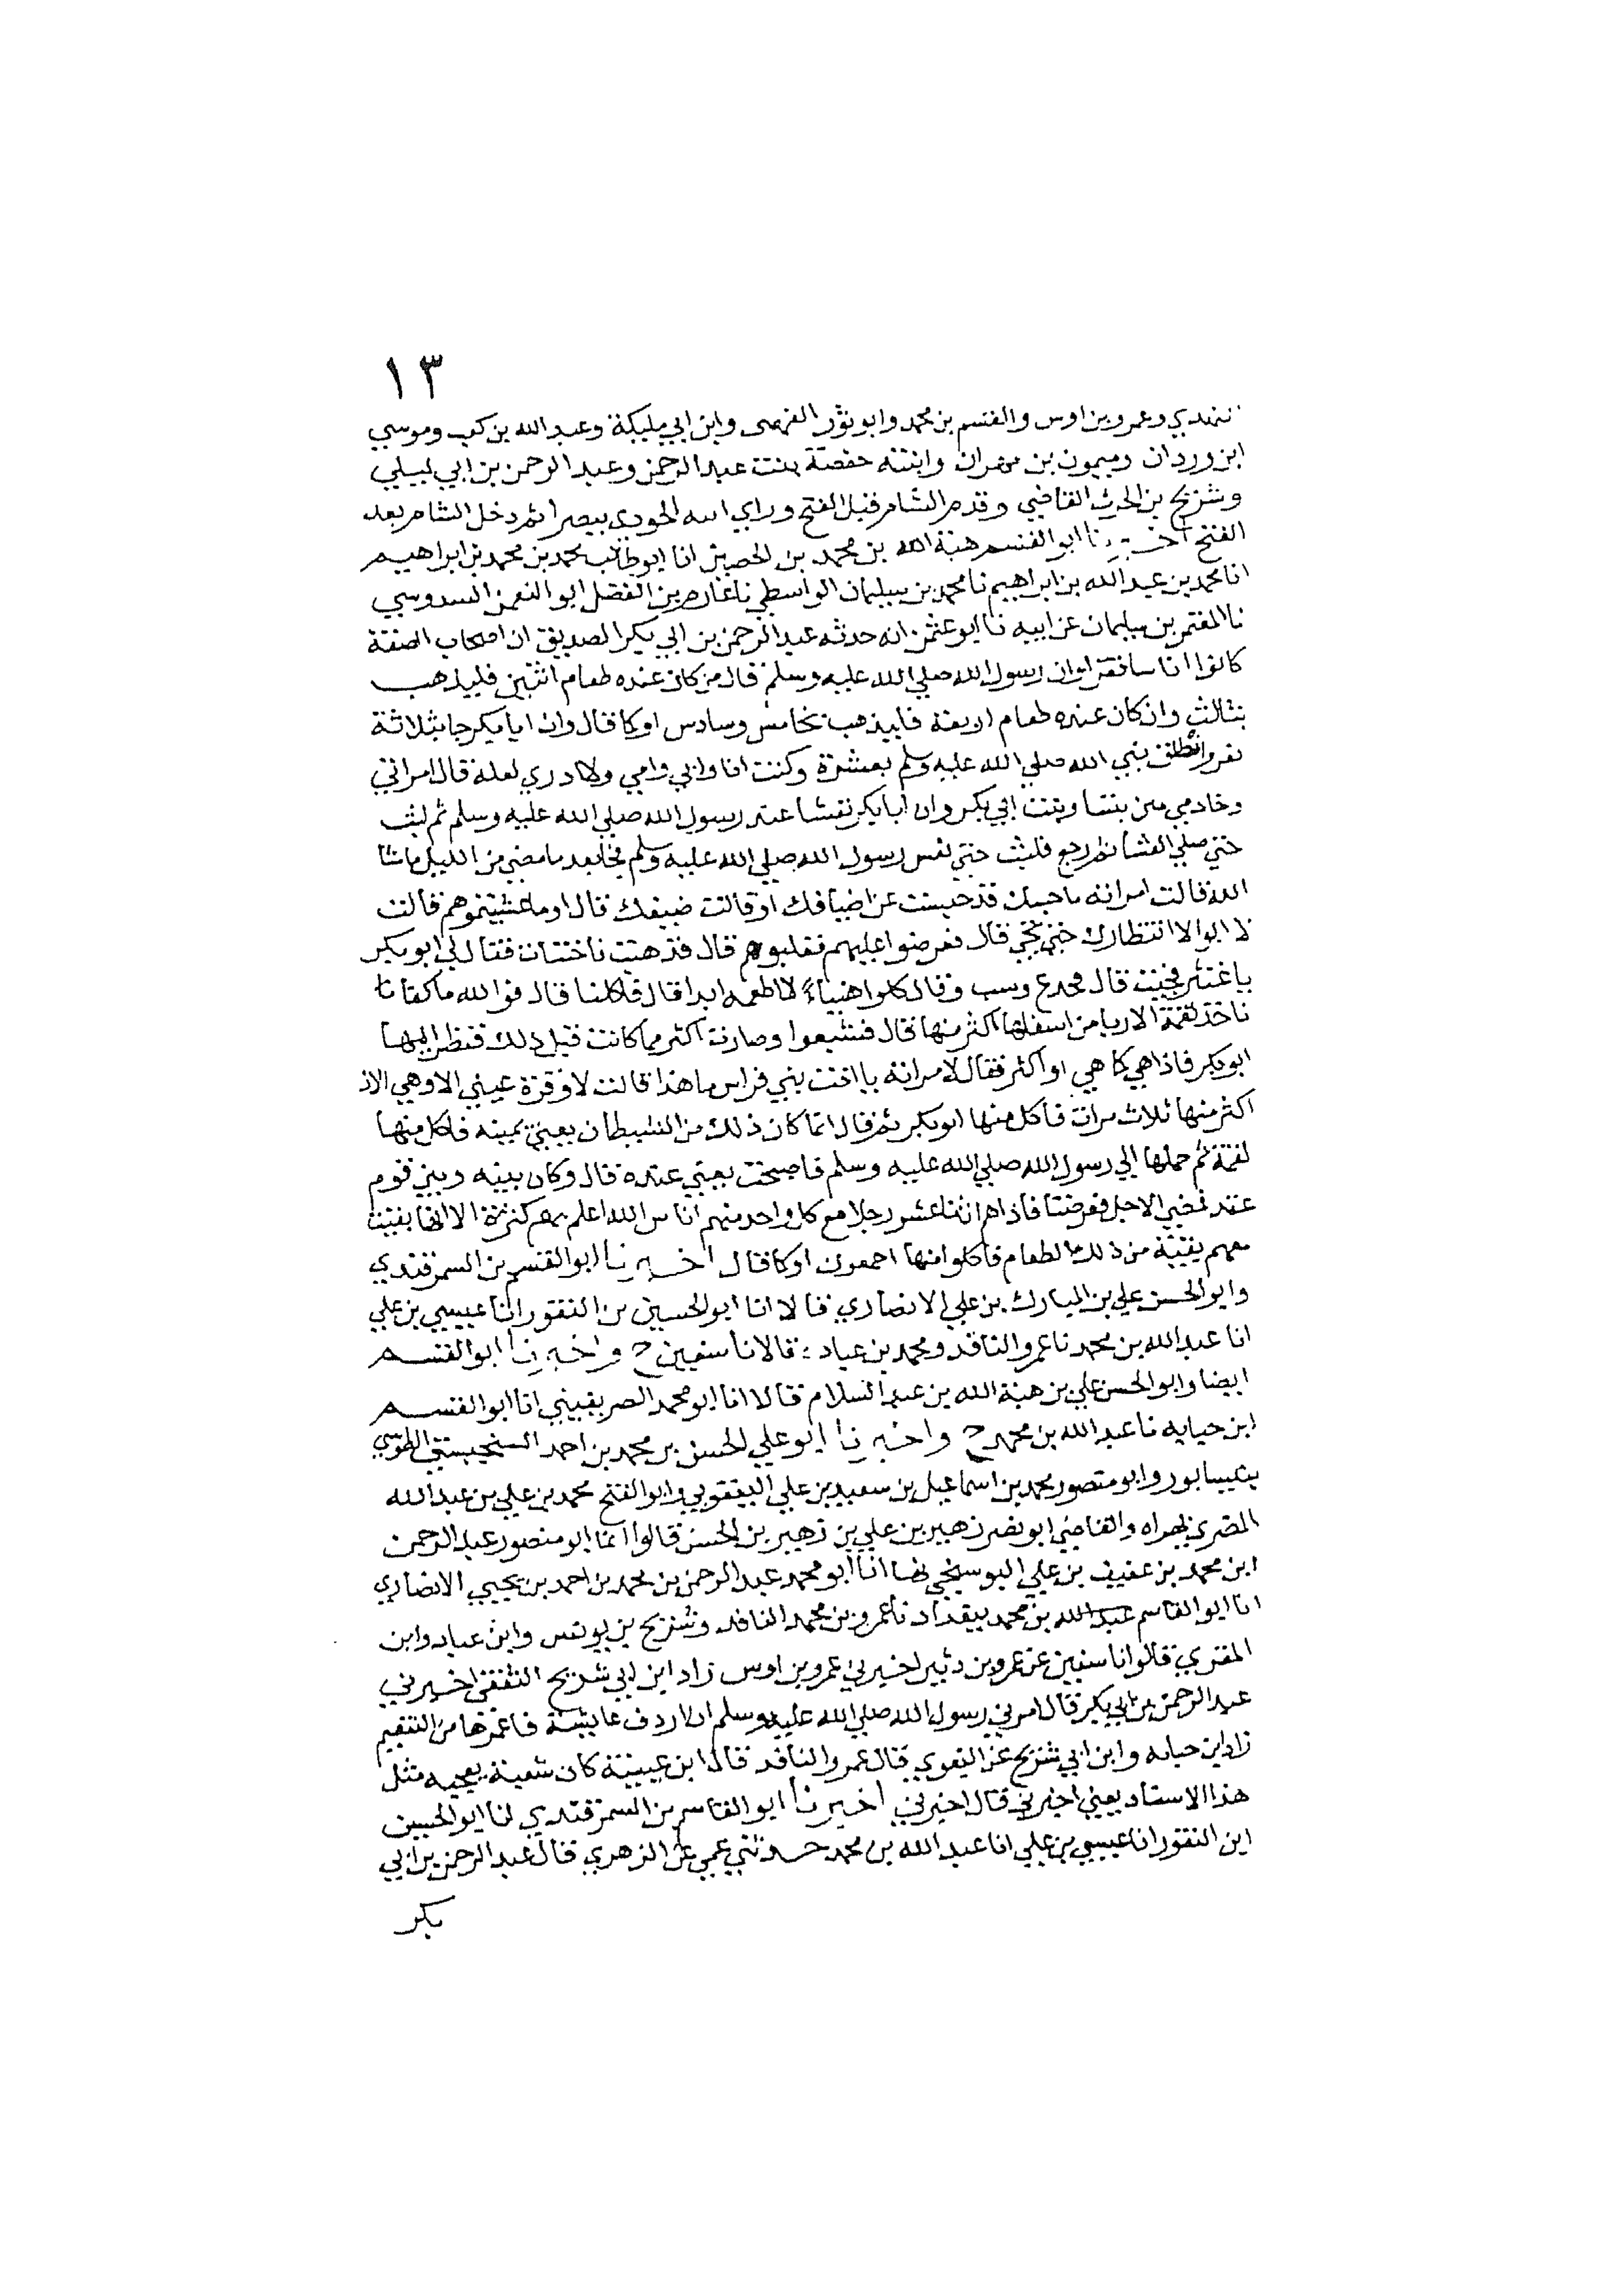 ١٣
النهدي وعمرو بن اوس والقسم بن محمد وابو ثور الفهمي وابن ابي مليكة وعبد الله بن كعب وموسي
ابن وردان وميمون بن مهران وابنته حفصة بنت عبد الرحمن وعبد الرحمن بن ابي ليلي
وشريح بن الحرث القاضي وقدم الشام قبل الفتح وراي ابنه الجودي ببصرا ثم دخل الشام بعد
الفتح اخبرنا ابو القسم هبة الله بن محمد بن الحصين انا ابو طالب محمد بن محمد بن ابراهيم
انا محمد بن عبد الله بن ابراهيم نا محمد بن سليمان الواسطي نا عارم بن الفضل ابو النعمن السدوسي
نا المعتمر بن سليمان عن ابيه نا ابو عثمن انه حدثه عبد الرحمن بن ابي بكر الصديق ان اصحاب الصفة
كانوا اناسا فقرا وان رسول الله صلي الله عليه وسلم قال من كان عنده طعام اثنين فليذهب
بثالث وان كان عنده طعام اربعة فليذهب بخامس وسادس او كما قال وان ابا بكر جا بثلاثة
نفر وانطلق نبي الله صلي الله عليه وسلم بعشرة وكنت انا وابي وامي ولا ادري لعله قال امراتي
وخادمي من بيتنا وبيت ابي بكر وان ابا بكر تعشا عند رسول الله صلي الله عليه وسلم ثم لبث
حتي صلي العشا ثم رجع فلبث حتي نعس رسول الله صلي الله عليه وسلم فجا بعد ما مضي من الليل ما شا
الله قالت امراته ما حبسك قد حبست عن اضيافك او قالت ضيفك قال او ما عشيتموهم قالت
لا ابوا الا انتظارك حتي تجي قال فعرضوا عليهم فغلبوهم قال فذهبت فاختبات فقال لي ابو بكر
يا غنثر فجيت قال فجدع وسب وقال كلوا هنياء لا اطعمه ابدا قال فاكلنا قال فوالله ما كنا نا
ناخذ لقمة الا ربا من اسفلها اكثر منها قال فشبعوا وصارت اكثر مما كانت قبل ذلك فنظر اليها
ابو بكر فاذا هي كما هي او اكثر فقال لامراته يا اخت بني فراس ما هذا قالت لا وقرة عيني الا وهي الان
اكثر منها ثلاث مرات فاكل منها ابو بكر ثم قال انما كان ذلك من الشيطان يعني يمينه فاكل منها
لقمة ثم حملها الي رسول الله صلي الله عليه وسلم فاصبحت يعني عنده قال وكان بينه وبين قوم
عقد فمضي الاجل فعرضنا فاذا هم اثنا عشر رجلا مع كل واحد منهم اناس الله اعلم بهم كثرة الا انها بقيت
معهم بقية من ذلك الطعام فاكلوا منها اجمعون او كما قال اخبرنا ابو القسم بن السمرقندي
وابو الحسن علي بن المبارك بن علي الانصاري قالا انا ابو الحسين بن النقور انا عيسي بن علي
انا عبد الله بن محمد نا عمرو الناقد ومحمد بن عباد : قالا نا سفين ح واخبرنا ابو القسم
ايضا وابو الحسن علي بن هبة الله بن عبد السلام قالا انا ابو محمد الصريفيني انا ابو القسم
ابن حبابه نا عبد الله بن محمد ح واخبرنا ابو علي الحسن بن محمد بن احمد السنجبستي الطوسي
بنيسابور وابو منصور محمد بن اسماعيل بن سعيد بن علي اليعقوبي وابو الفتح محمد بن علي بن عبد الله
المضري بهراه والقاضي ابو نصر زهير بن علي بن زهير بن الحسن قالوا انا ابو منصور عبد الرحمن
ابن محمد بن عفيف بن علي البوسنجي بها انا ابو محمد عبد الرحمن بن محمد بن احمد بن يحيي الانصاري
انا ابو القاسم عبد الله بن محمد ببغداد نا عمرو بن محمد الناقد وشريح بن يونس وابن عباد وابن
المقري قالوا نا سفين عن عمرو بن دينر اخبرني عمرو بن اوس زاد ابن ابي شريح الثقفي اخبرني
عبد الرحمن بن ابي بكر قال امرني رسول الله صلي الله عليه وسلم ان اردف عايشة فاعمرها من التنعيم
زاد ابن حبابه وابن ابي شريح عن البغوي قال عمرو الناقد قال ابن عيينة كان شعبة يعجبه مثل
هذا الاسناد يعني اخبرني قال اخبرني اخبرنا ابو القاسم بن السمرقندي انا ابو الحسين
ابن النقور انا عيسي بن علي انا عبد الله بن محمد حدثني عمي عن الزهري قال عبد الرحمن بن ابي
بكر